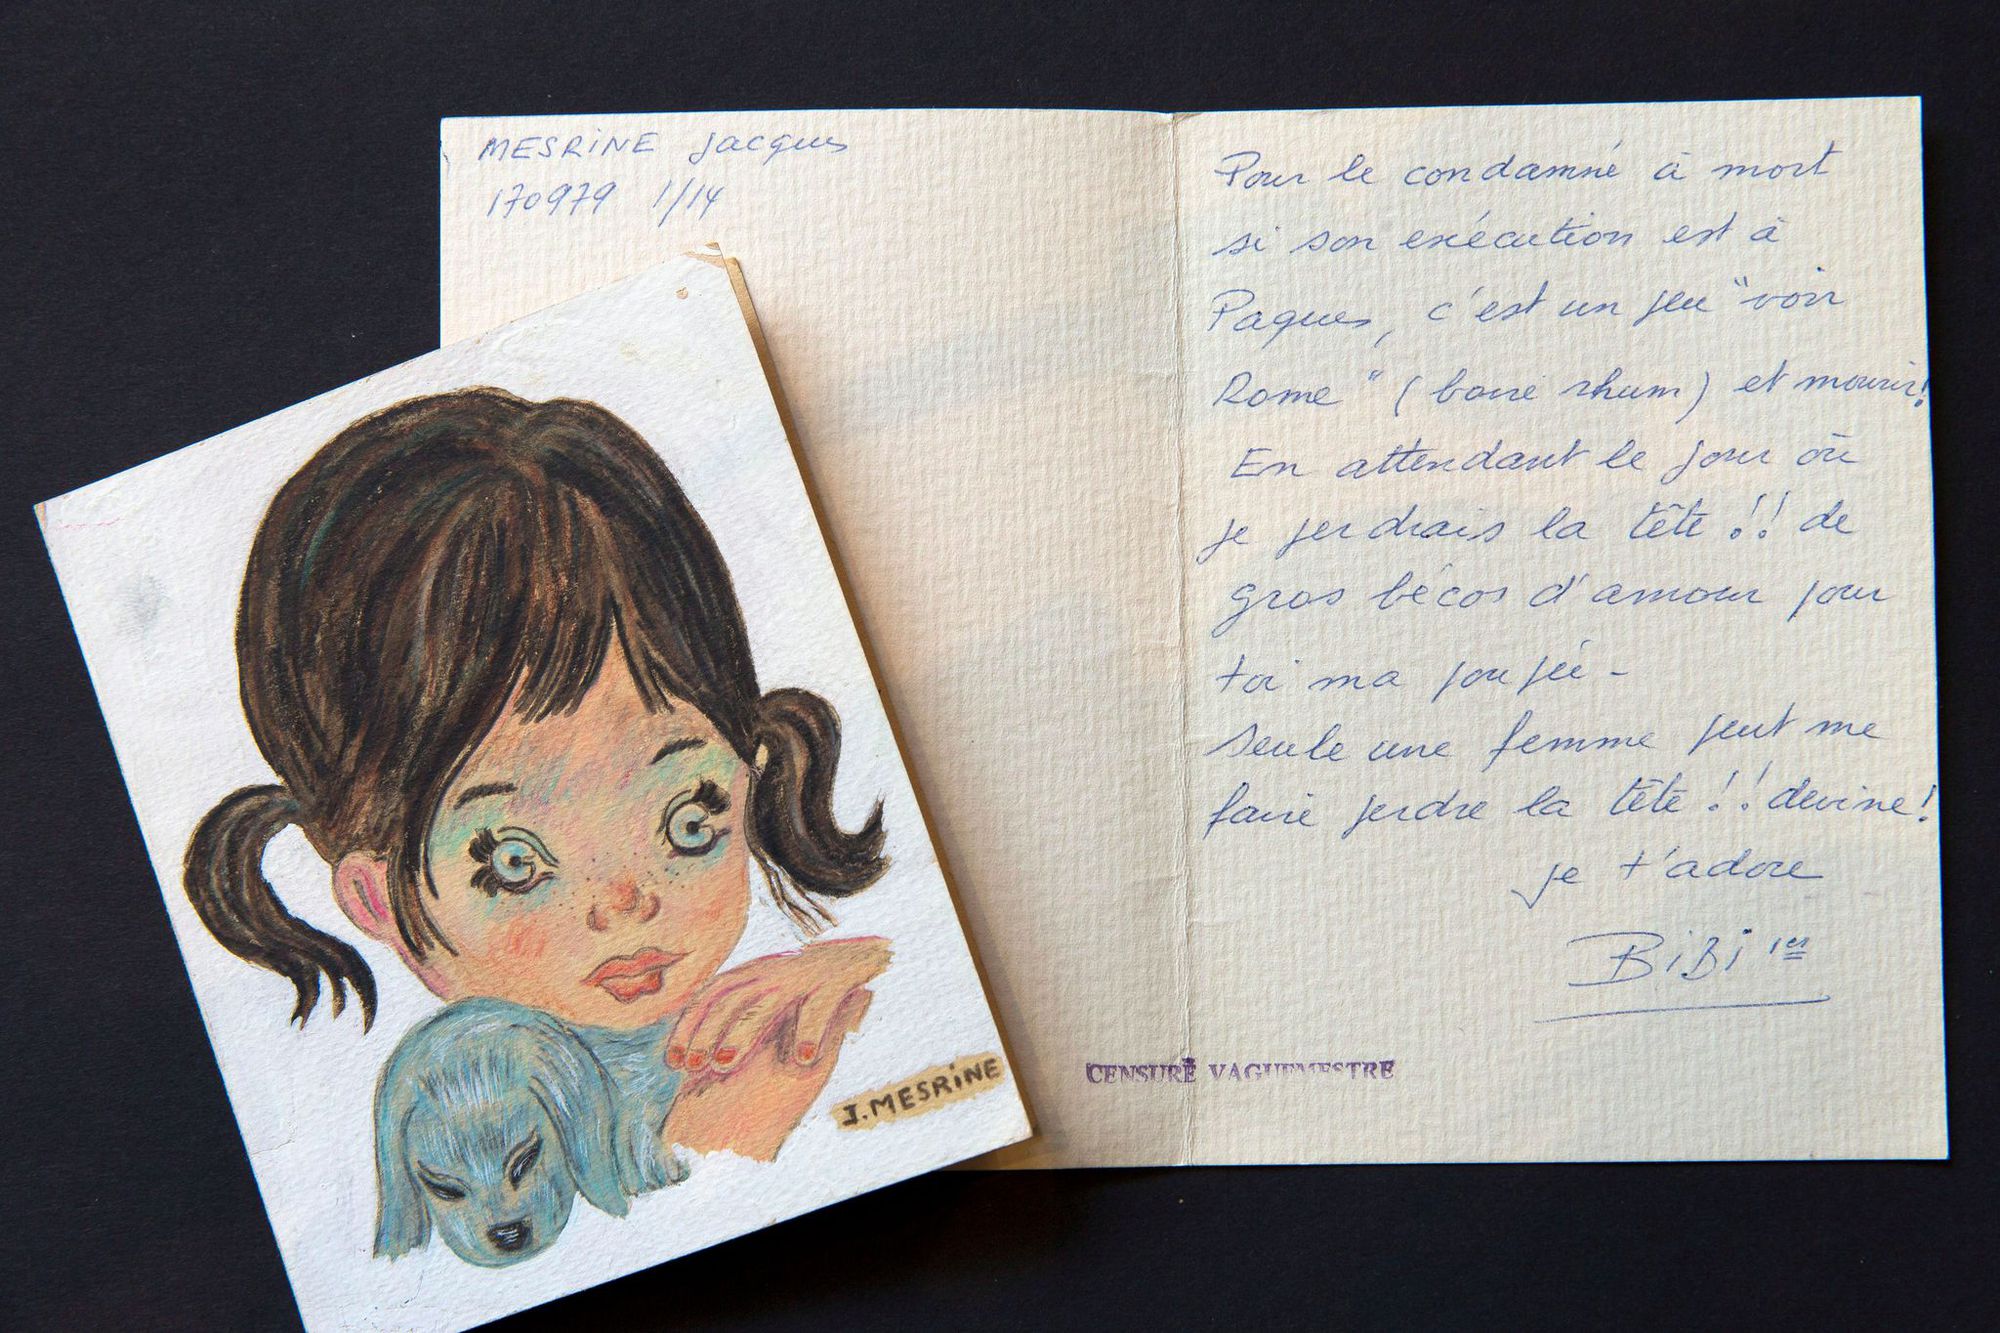 MESRINE Jacques
170979 1/14
Pour le condamné à mort
si son exécution est à
Paques, c'est un jeu "voir
Rome" (boire rhum) et mourir!
En attendant le jour où
je perdrais la tête !! de
gros bécos d'amour pour
toi ma poupée -
Seule une femme peut me
faire perdre la tête !! devine!
je t'adore
BiBi 1er
CENSURÉ VAGUEMESTRE
J. MESRINE